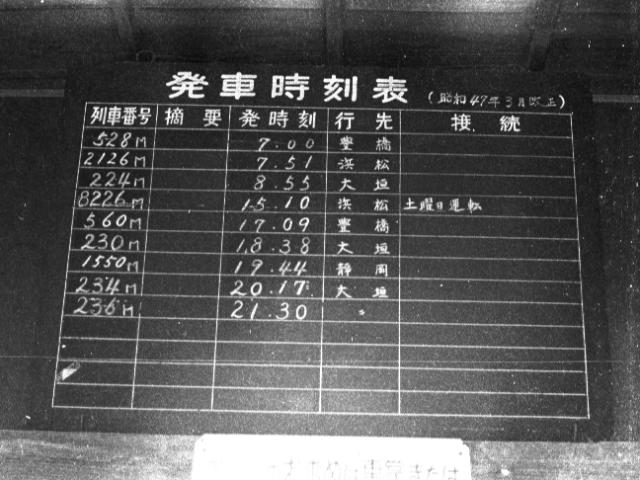 発車時刻表 (昭和47年3月改正)
列車番号 摘要 発時刻 行先 接続
528M 7.00 豊橋
2126M 7.51 浜松
224M 8.55 大垣
8226M 15.10 浜松 土曜日運転
560M 17.09 豊橋
230M 18.38 大垣
1550M 19.44 静岡
234M 20.17 大垣
236M 21.30 〃